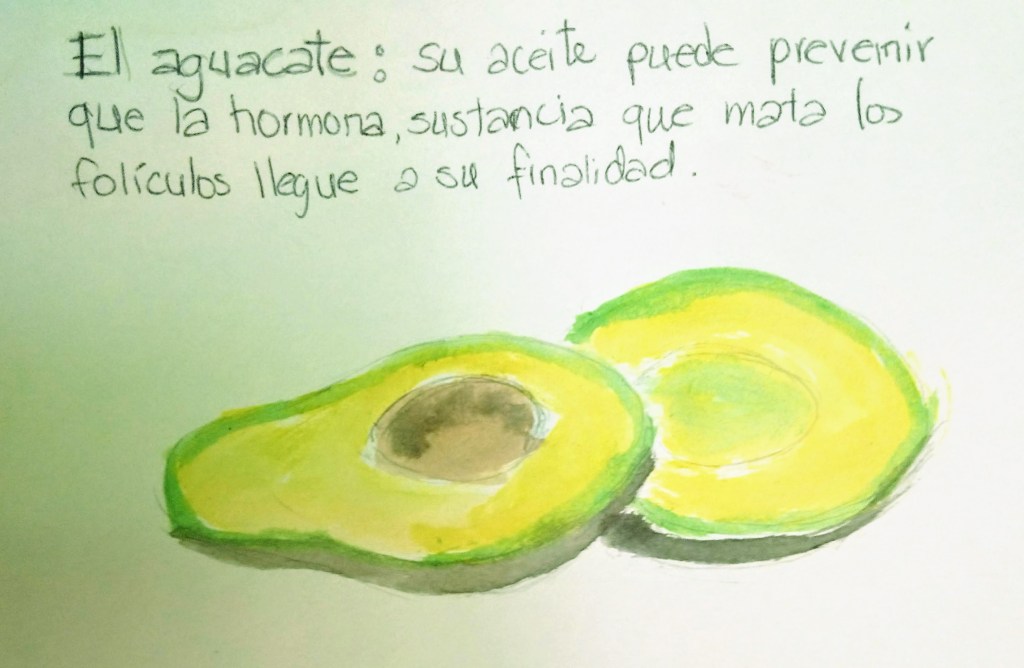 El aguacate: su aceite puede prevenir
que la hormona, sustancia que mata los
folículos llegue a su finalidad.